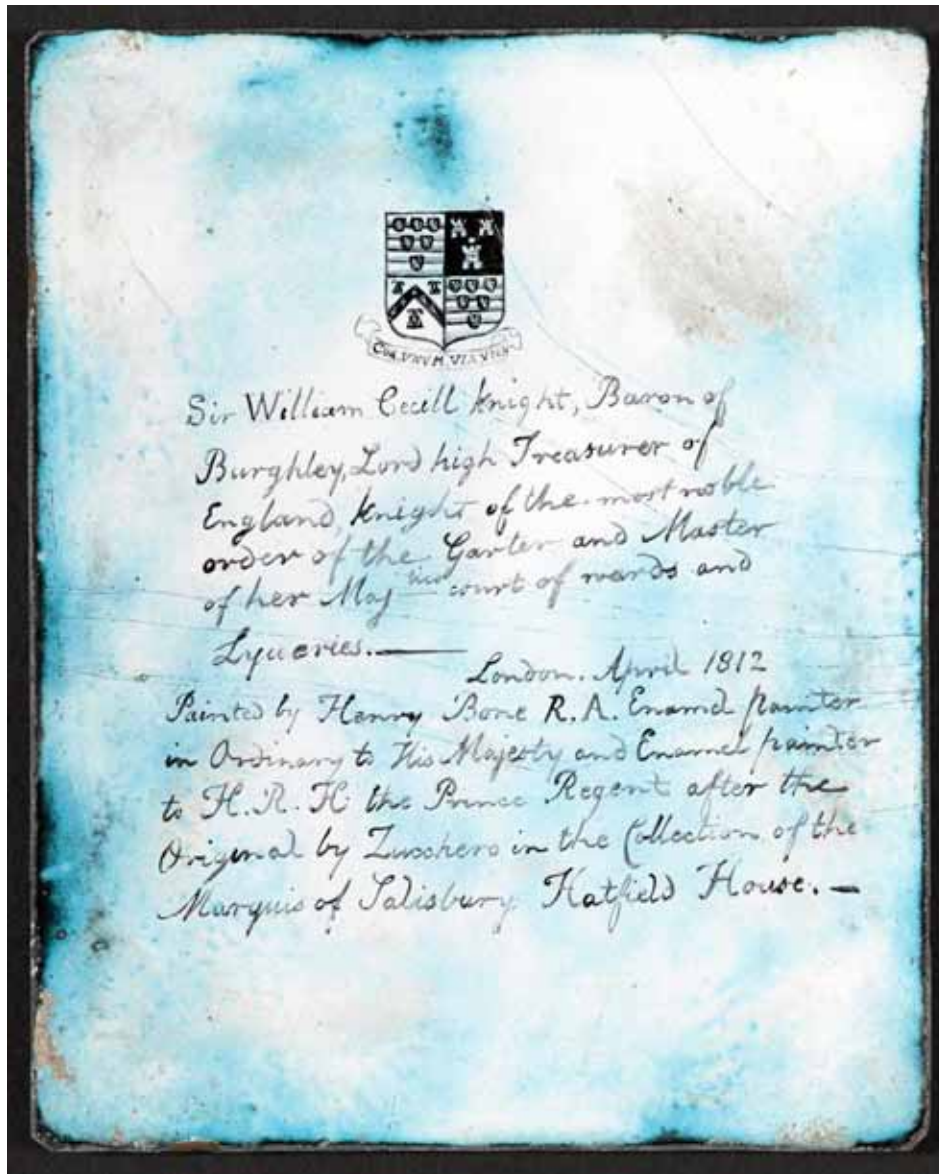 COR VNVM VIA VNA
Sir William Cecill knight, Baron of
Burghley, Lord high Treasurer of
England, knight of the most noble
order of the Garter and Master
of her Maj ties court of wards and
Lyueries.—
London. April 1812
Painted by Henry Bone R. A. Enamel painter
in Ordinary to His Majesty and Enamel painter
to H. R. H the Prince Regent after the
Original by Zucchero in the Collection of the
Marquis of Salisbury Hatfield House. —